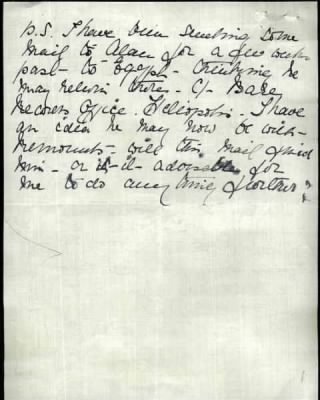 P.S. I have been sending some
mail to Alan for a few weeks
past - to Egypt - thinking he
may return there - C/- Base
Records Office. Heliopolis. I have
an idea he may now be with
Remounts - will this mail find
him - or is it advisable for
me to do anything further?